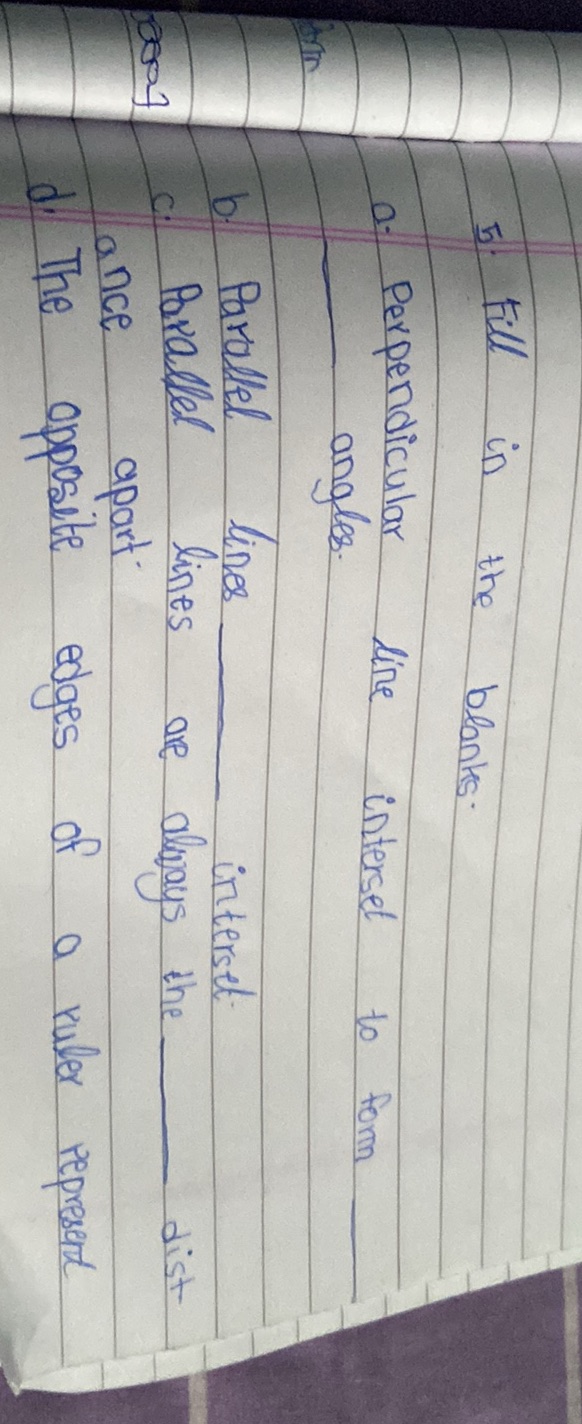 5. Fill in the blanks.
a. Perpendicular line intersel to form ____
____ angles.
b. Parallel lines ____ intersel.
c. Parallel lines are always the ____ dist
ance apart.
d. The opposite edges of a ruler represent